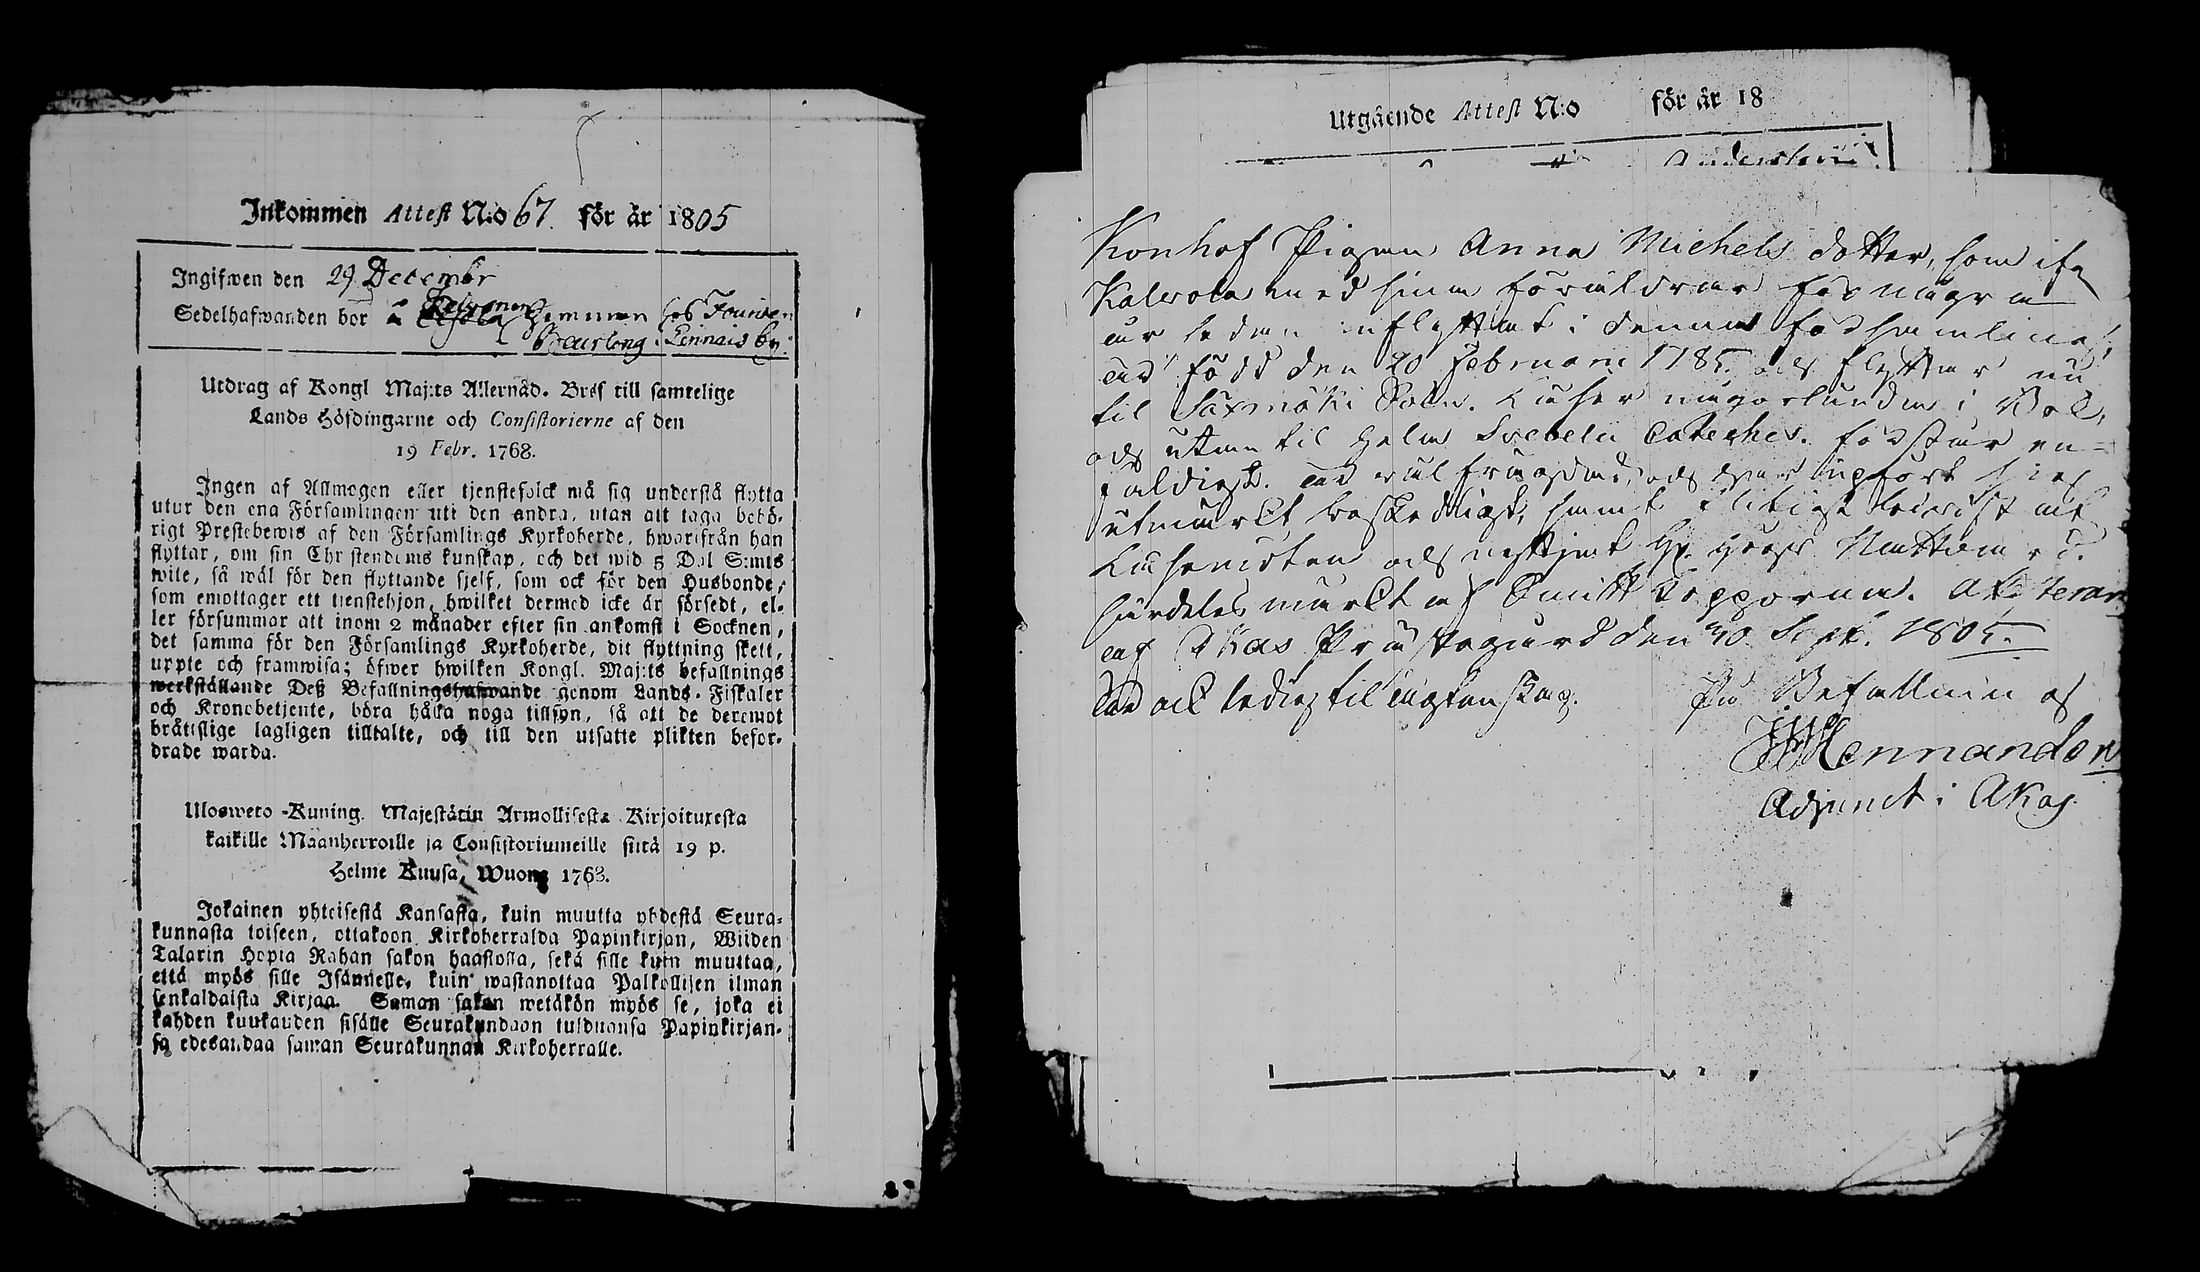 Inkommen Attest N:o 67. för år 1805
Ingifwen den 29 Decembr
Sedelhafwanden bor å
by.
Utdrag af Kongl Maj:ts Allernåd. Bref till samtelige
Lands Höfdingarne och Consistorierne af den
19 Febr. 1768.
Ingen af Allmogen eller tjenstefolck må sig understå flytta
utur den ena Församlingen uti den andra, utan att taga behö-
rigt Prestebewis af den Församlings Kyrkoherde, hwarifrån han
flyttar, om sin Christendoms kunskap, och det wid 5 Dal S:mts
wite, så wäl för den flyttande sjelf, som ock för den Husbonde,
som emottager ett tjenstehjon, hwilket dermed icke är försedt, el-
ler försummar att inom 2 månader efter sin ankomst i Socknen,
det samma för den Församlings Kyrkoherde, dit flyttning skett,
uppte och framwisa; öfwer hwilken Kongl. Maj:ts befallnings
werkställande Deß Befallningshafwande genom Lands-Fiskaler
och Kronobetjente, böra hålla noga tillsyn, så att de deremot
bråttslige lagligen tilltalte, och till den utsatte plikten befor-
drade warda.
Ulosweto Kuning. Majestätin Armollisesta Kirjoituxesta
kaikille Maanherroille ja Consistoriumeille siitä 19 p.
Helme Kuusa, Wuonna 1768.
Jokainen yhteisestä Kansasta, kuin muutta yhdestä Seura-
kunnasta toiseen, ottakoon Kirkoherralda Papinkirjan, Wiiden
Talarin Hopia Rahan sakon haastolla, sekä sille kuin muuttaa,
että myös sille Isännelle, kuin wastanottaa Palkollisen ilman
senkaldaista Kirjaa. Saman sakon wetäkön myös se, joka ei
kahden kuukauden sisälle Seurakundaan tulduansa Papinkirjan-
sa edesandaa saman Seurakunnan Kirkoherralle.
Utgående Attest N:o för år 18
Konhof Pigan Anna Michels dotter, som ifr
Kalvola med sina föräldrar för några
år sedan inflyttat i denna församling,
är född den 20 Februarii 1785. och flyttar nu
til Säxmäki Sokn. Läser någorlunda i Bok,
och utan til hela Svebelii Cateches. förstår en-
faldigt. är väl frägdad, och har upfört sig
utmärkt beskedligt, samt flitigt bevistat
Läsemöten och
märkt af Kopporna. Attesterar
af Akas Prästegård den 30 Sept. 1805.
är ock ledig til ägtenskap. På Befallning af
Mennander
Adjunct i Akas.